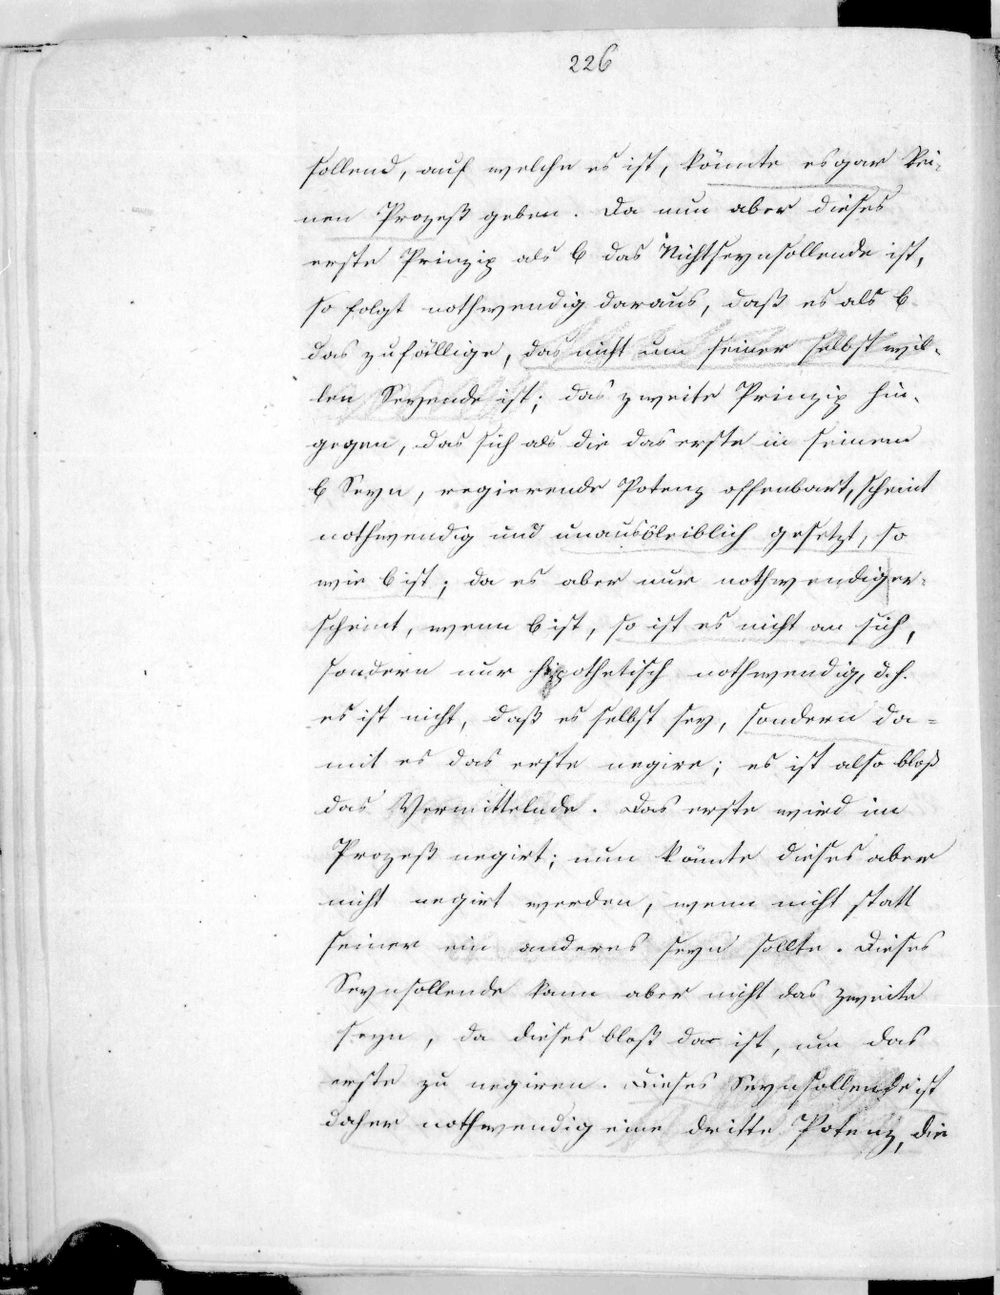 226
sollend, auf welche es ist, könnte es gar kei-
nen Prozeß geben. Da nun aber dieses
erste Prinzip als b das Nichtseynsollende ist,
so folgt nothwendig daraus, daß es als b
das zufällige, das nicht um seiner selbst wil-
len Seyende ist; das zweite Prinzip hin-
gegen, das sich als die das erste in seinem
b Seyn, negierende Potenz offenbart, scheint
nothwendig und unausbleiblich gesetzt, so
wie b ist; da es aber nur nothwendig er-
scheint, wenn b ist, so ist es nicht an sich,
sondern nur hypothetisch nothwendig, d.h.
es ist nicht, daß es selbst sey, sondern da=
mit es das erste negire; es ist also bloß
das Vermittelnde. Das erste wird im
Prozeß negirt; nun könnte dieses aber
nicht negirt werden, wenn nicht statt
seiner ein anderes seyn sollte. Dieses
Seynsollende kann aber nicht das zweite
seyn, da dieses bloß da ist, um das
erste zu negiren. Dieses Seynsollende ist
daher nothwendig eine dritte Potenz, die